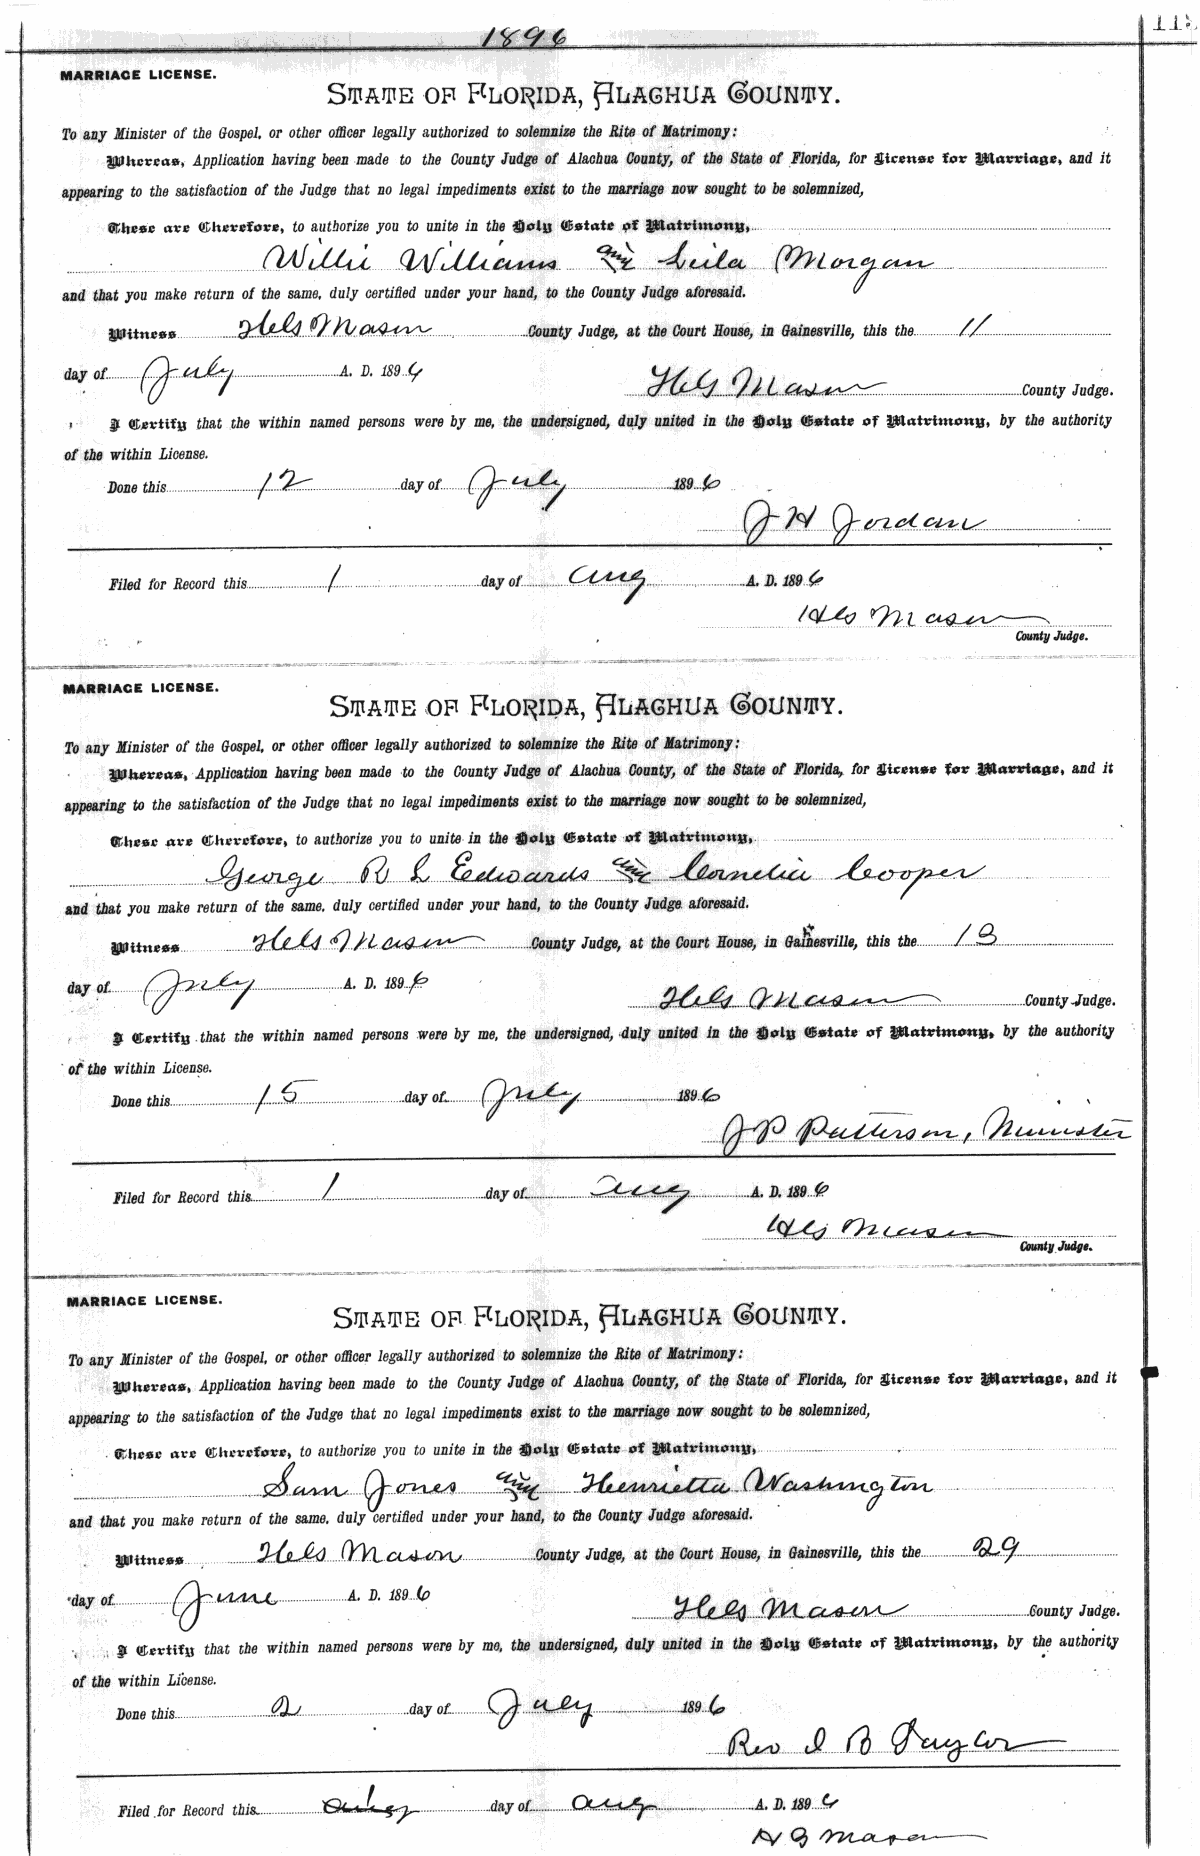 1896
MARRIAGE LICENSE.
STATE OF FLORIDA, ALACHUA COUNTY.
To any Minister of the Gospel, or other officer legally authorized to solemnize the Rite of Matrimony:
Whereas, Application having been made to the County Judge of Alachua County, of the State of Florida, for License for Marriage, and it
appearing to the satisfaction of the Judge that no legal impediments exist to the marriage now sought to be solemnized,
These are Therefore, to authorize you to unite in the Holy Estate of Matrimony,
Willie Williams and Leila Morgan
and that you make return of the same, duly certified under your hand, to the County Judge aforesaid.
Witness Mason County Judge, at the Court House, in Gainesville, this the 11
day of July A. D. 1896 Mason County Judge.
I Certify that the within named persons were by me, the undersigned, duly united in the Holy Estate of Matrimony, by the authority
of the within License.
Done this 12 day of July 1896
J H Jordan
Filed for Record this 1 day of Aug A. D. 1896
Mason
County Judge.
MARRIAGE LICENSE.
STATE OF FLORIDA, ALACHUA COUNTY.
To any Minister of the Gospel, or other officer legally authorized to solemnize the Rite of Matrimony:
Whereas, Application having been made to the County Judge of Alachua County, of the State of Florida, for License for Marriage, and it
appearing to the satisfaction of the Judge that no legal impediments exist to the marriage now sought to be solemnized,
These are Therefore, to authorize you to unite in the Holy Estate of Matrimony,
George R L Edwards and Cornelia Cooper
and that you make return of the same, duly certified under your hand, to the County Judge aforesaid.
Witness Mason County Judge, at the Court House, in Gainesville, this the 13
day of July A. D. 1896 Mason County Judge.
I Certify that the within named persons were by me, the undersigned, duly united in the Holy Estate of Matrimony, by the authority
of the within License.
Done this 15 day of July 1896
J P Patterson, Minister
Filed for Record this 1 day of Aug A. D. 1896
Mason
County Judge.
MARRIAGE LICENSE.
STATE OF FLORIDA, ALACHUA COUNTY.
To any Minister of the Gospel, or other officer legally authorized to solemnize the Rite of Matrimony:
Whereas, Application having been made to the County Judge of Alachua County, of the State of Florida, for License for Marriage, and it
appearing to the satisfaction of the Judge that no legal impediments exist to the marriage now sought to be solemnized,
These are Therefore, to authorize you to unite in the Holy Estate of Matrimony,
Sam Jones and Henrietta Washington
and that you make return of the same, duly certified under your hand, to the County Judge aforesaid.
Witness Mason County Judge, at the Court House, in Gainesville, this the 29
day of June A. D. 1896 Mason County Judge.
I Certify that the within named persons were by me, the undersigned, duly united in the Holy Estate of Matrimony, by the authority
of the within License.
Done this 2 day of July 1896
Rev I B Taylor
Filed for Record this day of Aug A. D. 1896
H G Mason